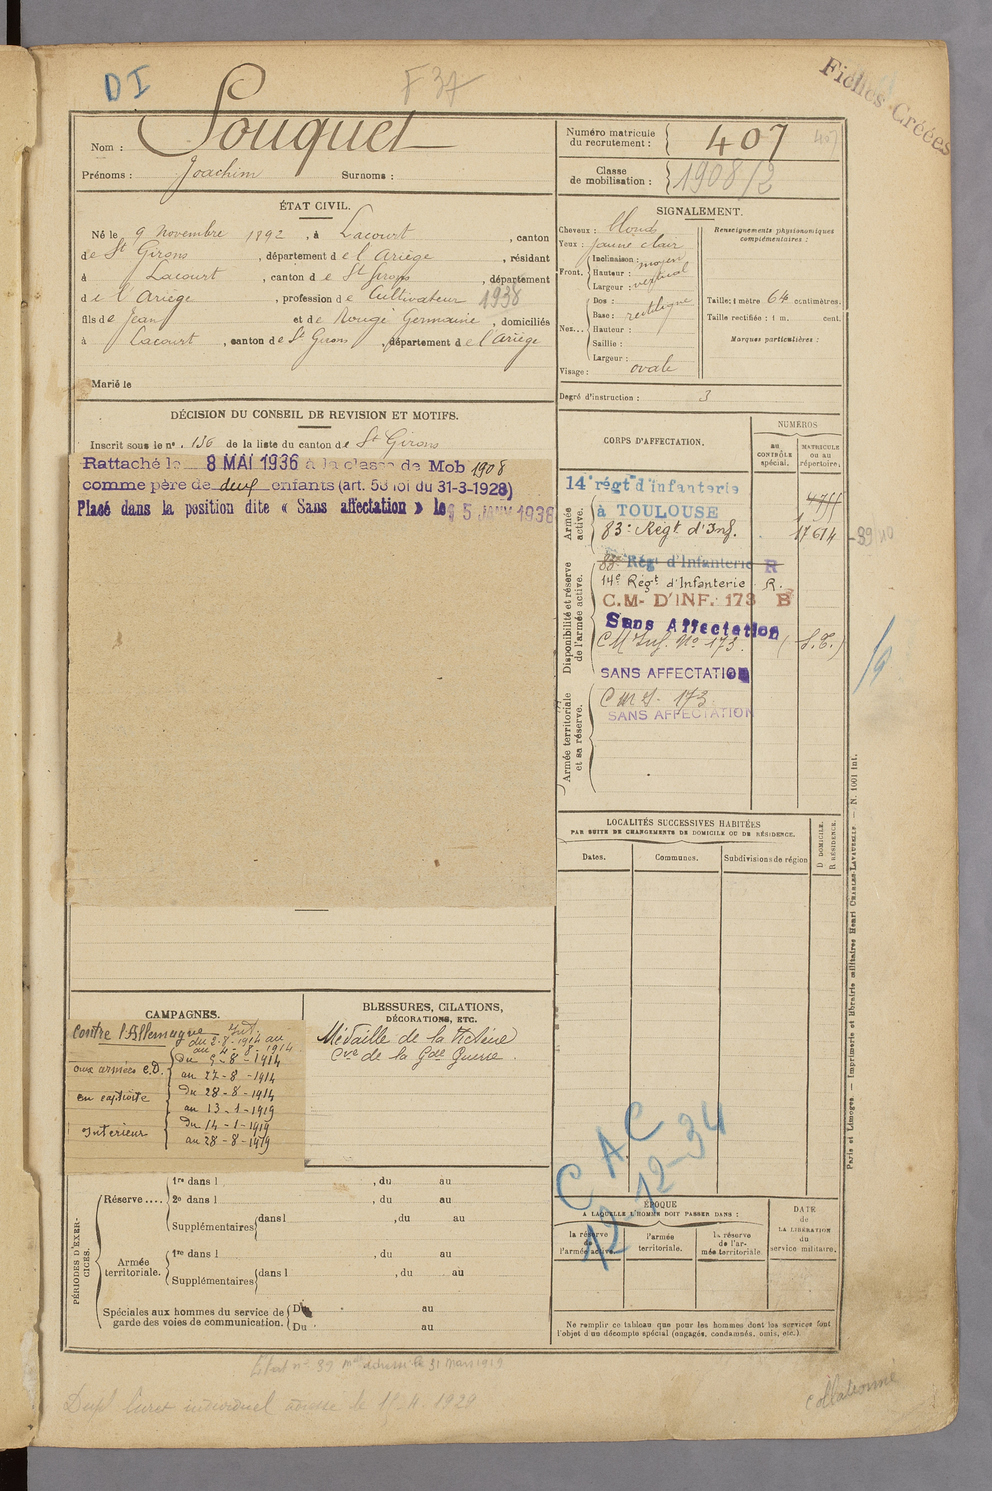 D I
F 37
Fiches Créées
Nom : Souquet
Prénoms : Joachim Surnoms :
Numéro matricule du recrutement : 407
407
Classe de mobilisation : 1908/2
ÉTAT CIVIL.
Né le 9 Novembre 1892, à Lacourt, canton
de St Girons, département de l'Ariège, résidant
à Lacourt, canton de St Girons, département
de l'Ariège, profession de Cultivateur 1938
fils de Jean et de Rougé Germaine, domiciliés
à Lacourt, canton de St Girons, département de l'Ariège
Marié le
SIGNALEMENT.
Cheveux : blonds
Yeux : jaune clair
Front. Inclinaison : moyen
Hauteur :
Largeur : vertical
Nez... Dos :
Base : rectiligne
Hauteur :
Saillie :
Largeur :
Visage : ovale
Renseignements physionomiques complémentaires :
Taille : 1 mètre 64 centimètres.
Taille rectifiée : 1 m. cent.
Marques particulières :
Degré d'instruction : 3
DÉCISION DU CONSEIL DE REVISION ET MOTIFS.
Inscrit sous le n° 136 de la liste du canton de St Girons
Rattaché le 8 MAI 1936 à la classe de Mob 1908
comme père de deux enfants (art. 58 loi du 31-3-1928)
Placé dans la position dite « Sans affectation » le 5 JANV 1938
CORPS D'AFFECTATION.
NUMÉROS
au CONTRÔLE spécial.
MATRICULE ou au répertoire.
Armée active.
14e régt d'infanterie
à TOULOUSE
83e Régt d'Inf. 17614
89/10
Disponibilité et réserve de l'armée active.
83e Régt d'Infanterie R
14e Régt d'Infanterie R.
C.M- D'INF. 173 B
Sans Affectation
CM Inf. No 173. (S.T.)
SANS AFFECTATION
Armée territoriale et sa réserve.
C M I. 173
SANS AFFECTATION
LOCALITÉS SUCCESSIVES HABITÉES
PAR SUITE DE CHANGEMENTS DE DOMICILE OU DE RÉSIDENCE.
Dates. Communes. Subdivisions de région
D DOMICILE.
R RÉSIDENCE.
CAMPAGNES.
Contre l'Allemagne
Int. du 2-8-1914 au
au 4-8-1914
aux armées C.D. du 5-8-1914
au 27-8-1914
en captivité du 28-8-1914
au 13-1-1919
Intérieur du 14-1-1919
au 28-8-1919
BLESSURES, CILATIONS,
DÉCORATIONS, ETC.
Médaille de la Victoire
Cve de la Gde Guerre.
CAC
12-12-34
PÉRIODES D'EXERCICES.
Réserve.... 1re dans l , du au
2e dans l , du au
Supplémentaires dans l , du au
Armée territoriale. 1re dans l , du au
Supplémentaires dans l , du au
Spéciales aux hommes du service de garde des voies de communication.
Du au
Du au
ÉPOQUE
A LAQUELLE L'HOMME DOIT PASSER DANS :
la réserve de l'armée active.
l'armée territoriale.
la réserve de l'armée territoriale.
DATE de LA LIBÉRATION du service militaire.
Ne remplir ce tableau que pour les hommes dont les services font
l'objet d'un décompte spécial (engagés, condamnés, omis, etc.)
Paris et Limoges. — Imprimerie et librairie militaires Henri CHARLES-LAVAUZELLE — N. 1001 int.
État n° 39 31 Mars 1919
Dupl livret individuel adressé le
collationné